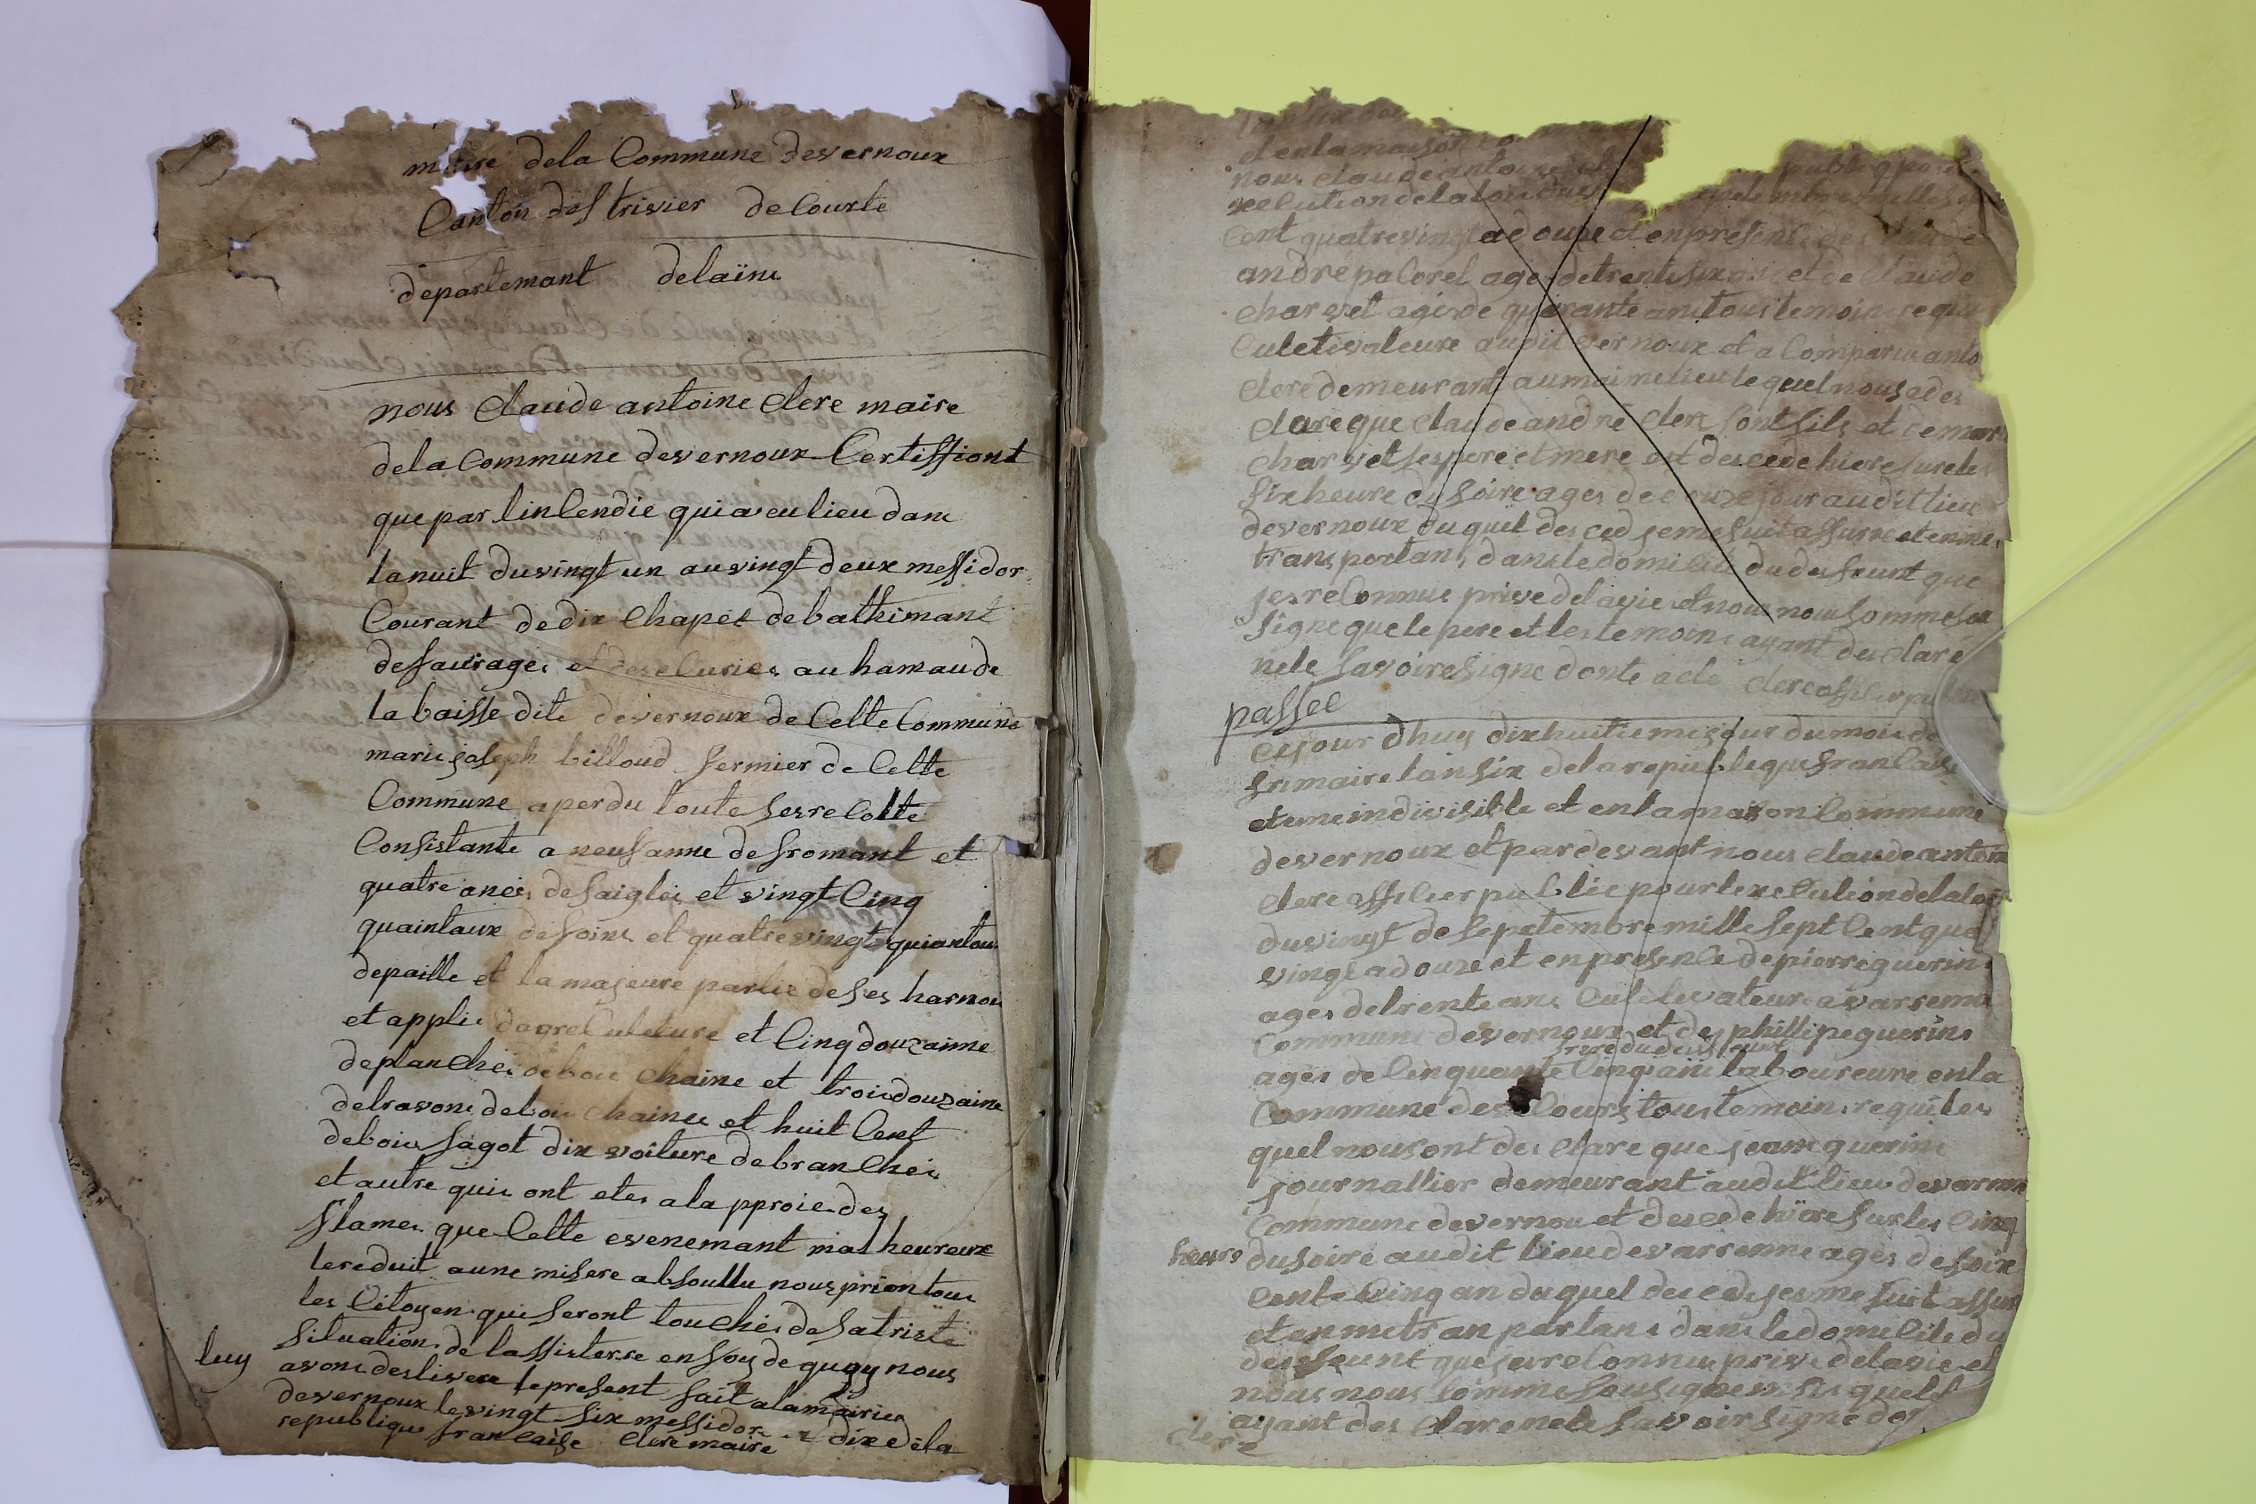 maire dela Commune devernoux
Canton destrivier de Courte
departemant delaïnc
nous claude antoine clere maire
dela Commune devernoux Certiffiont
que par linCendie qui a eu lieu danc
la nuit du vingt un au vingt deux messidor
Courant de dix Chapés debathimant
desaurages et des eCuries au hamaude
la baisse dite devernoux de Cette Commune
marie joseph billoud fermier de Cette
Commune a perdu toute ses reColte
Consistante a neuf anne defromant et
quatre aneis desaigles et vingt Cinq
quaintaux defoins et quatrevingt quiantous
depaille et la majeure partie de ses harnou
et applis dagreCuleture et Cinq douzainne
deplanChes debois Chaine et troisdouzaine
detravons debois Chaines et huit Cent
debois fagot dix voiture debranChes
et autre quis ont etes a la pproie des
flames que Cette evenemant malheureux
lereduit aune misere absoullu nous priontous
les Citoyen qui seront touChés de satriste
situations de lassisterse enfoy de quoy nous
luy avons deslivere le present fait alamairies
devernoux le vingt six messidor an dix dela
republique franCaise clere maire
et enla maison
nous claude antoine
xeCution delaloi du
Cent quatrevingt a douze et enpresenCe de Claude
andré paCorel ages detrentesix ans et de Claude
charvet ages de quarante ans tous temoins requis
Culetivateure audit vernoux et a Comparu anto
clere demeurant aumaime lieu lequel nous a des
claré que claude andré clere sont fils et demarie
charvet ses pere et mere est descede hiere sur les
six heure du soire ages de jour audit lieu
devernoux duquel desced jeme suit assurre et enme
transportant dans le domiCile du defunt que
jes reConnus prive delavie et nous nous somme sou
signe que le pere et les temoins ayant desclare
nele savoire signe donte acte clere offiCier pu
passee
Ce jour dhuy dixhuitieme jour du mois de
frimaire lan six dela republeque franCaise
et une indivisible et enla maison Commune
devernoux et pardevant nous claude antoin
clere offiCier publie pour lexeCution delaloi
du vingt de sepetembre mille sept Cent qua
vingt a douze et en presenCe de pierre guerin
ages detrente ans Culetevateure a varrenne
Commune devernoux et de phillipe guerins
frere du deffunt
ages de Cinquante Cinq ans laboureure enla
Commune des Cours tous temoins requi les
quel nous ont desclare que jean guerins
journallier demeurant audit lieu devarenne
Commune devernou et descede hiere sur les Cinq
heure du soire audit lieu devarrenne ages de soix
ante Cinq an duquel desced jesme suit assur
et en metranportant dans ledomeCile du
deffeunt que jes reConnus prive delavie et
nous nous somme sousigne quelf
ayant des Clare nele savoir signe don
clere